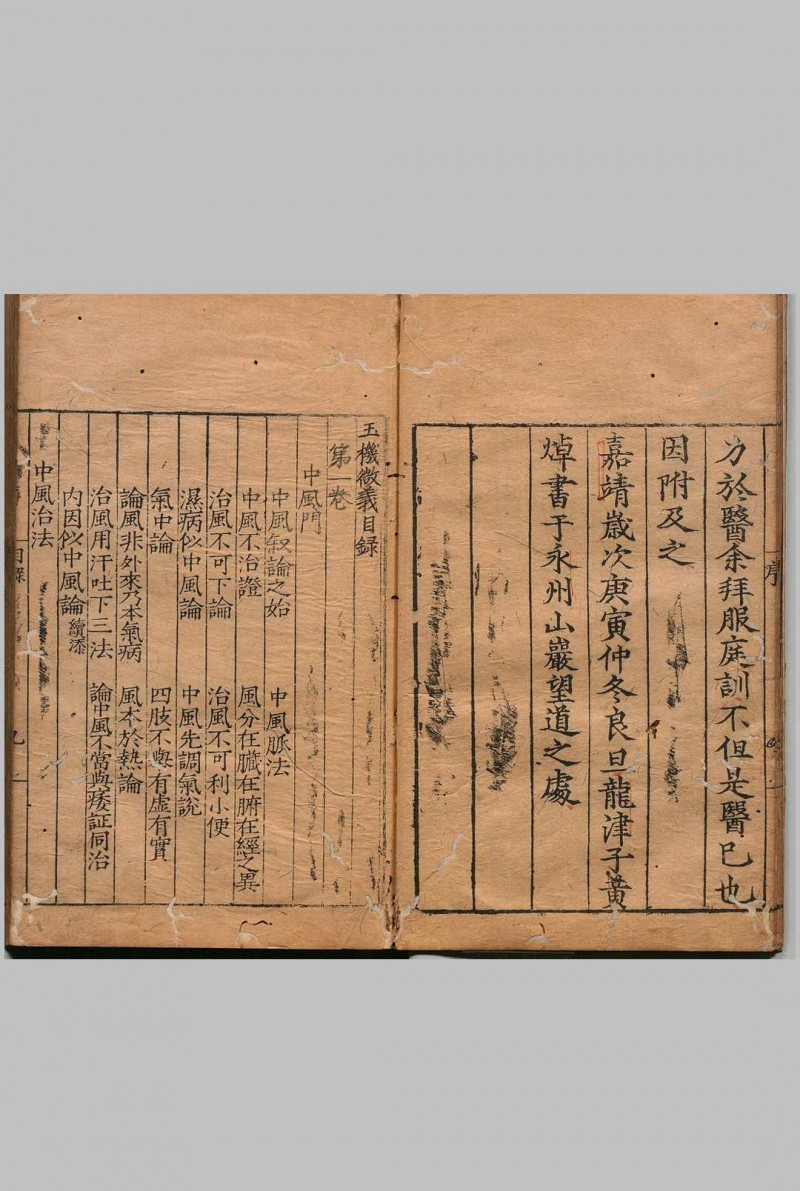 序
力於醫余拜服庭訓不但是醫已也
因附及之
嘉靖歲次庚寅仲冬良旦龍津子黃
焯書于永州山巖望道之處
玉機微義目錄
第一卷
中風門
中風叙論之始
中風脈法
中風不治證
風分在臟在腑在經之異
治風不可下論
治風不可利小便
濕病似中風論
中風先調氣說
氣中論
四肢不舉有虛有實
論風非外來乃本氣病
風本於熱論
治風用汗吐下三法
論中風不當與痿証同治
內因似中風論續添
中風治法
目錄
九